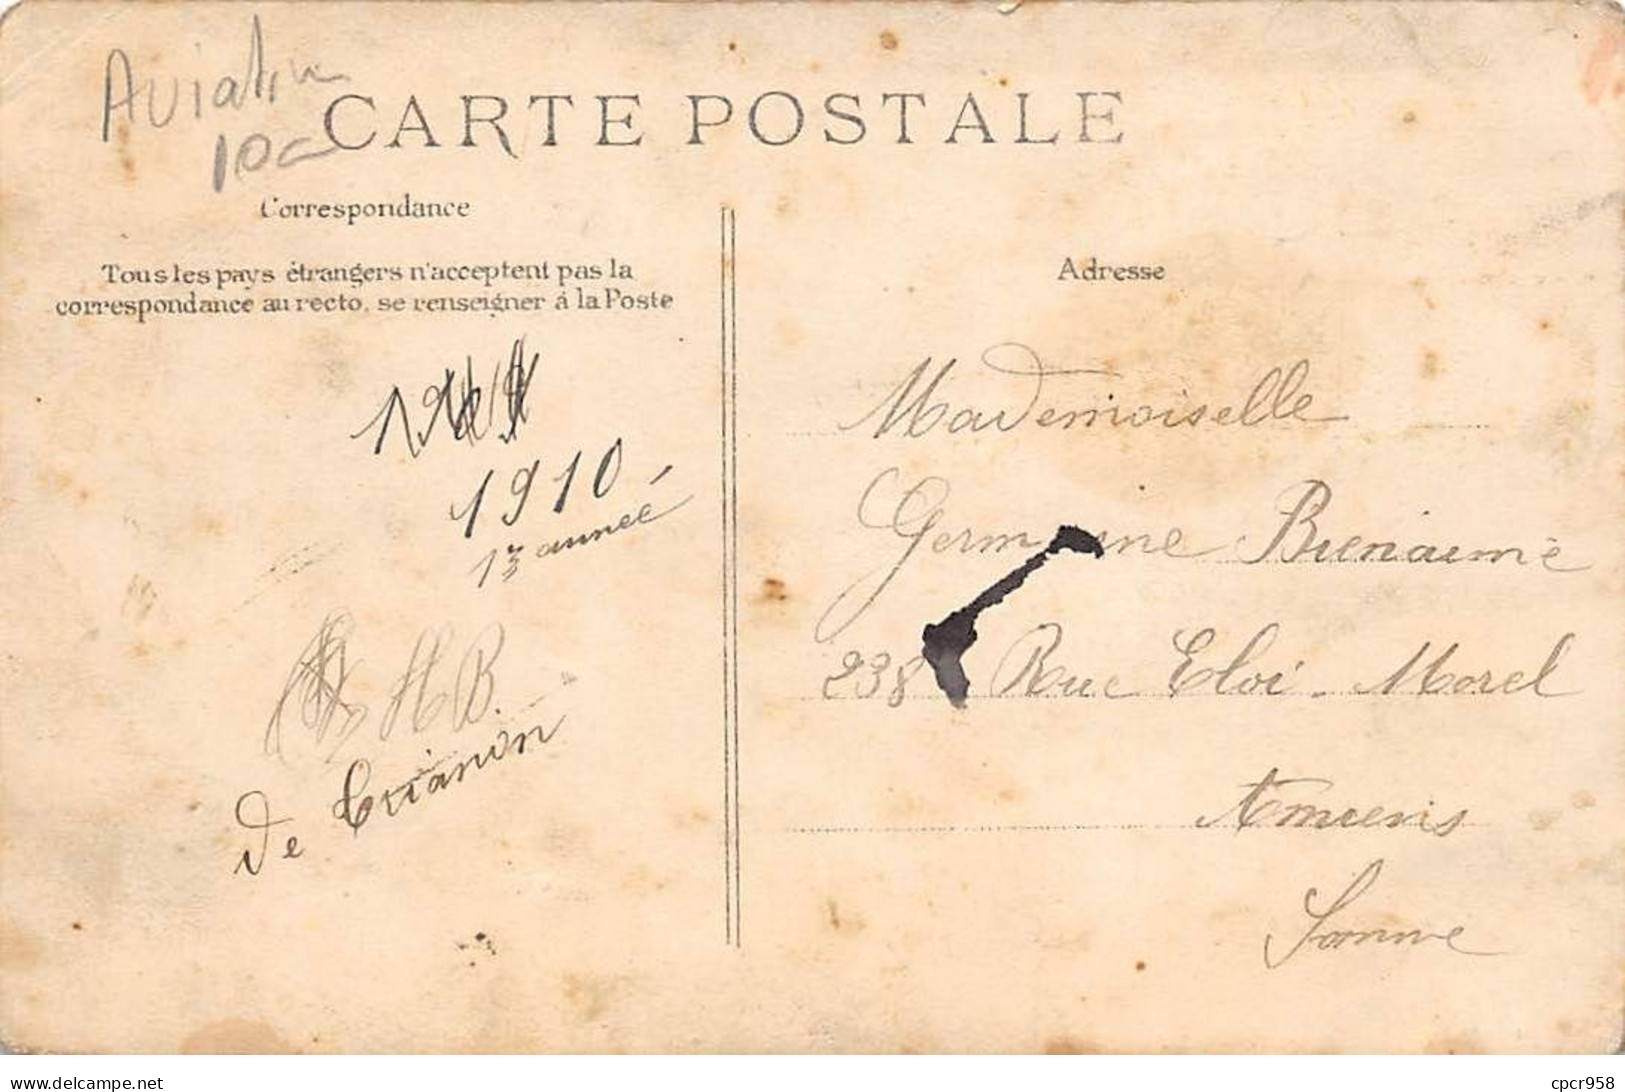 Aviation
10c
CARTE POSTALE
Correspondance
Tous les pays étrangers n'acceptent pas la
correspondance au recto, se renseigner à la Poste
1910
13 année
HB.
De Trianon
Adresse
Mademoiselle
Germaine Bienaimé
238 Rue Eloi-Morel
Amiens
Somme
www.delcampe.net
cpcr958